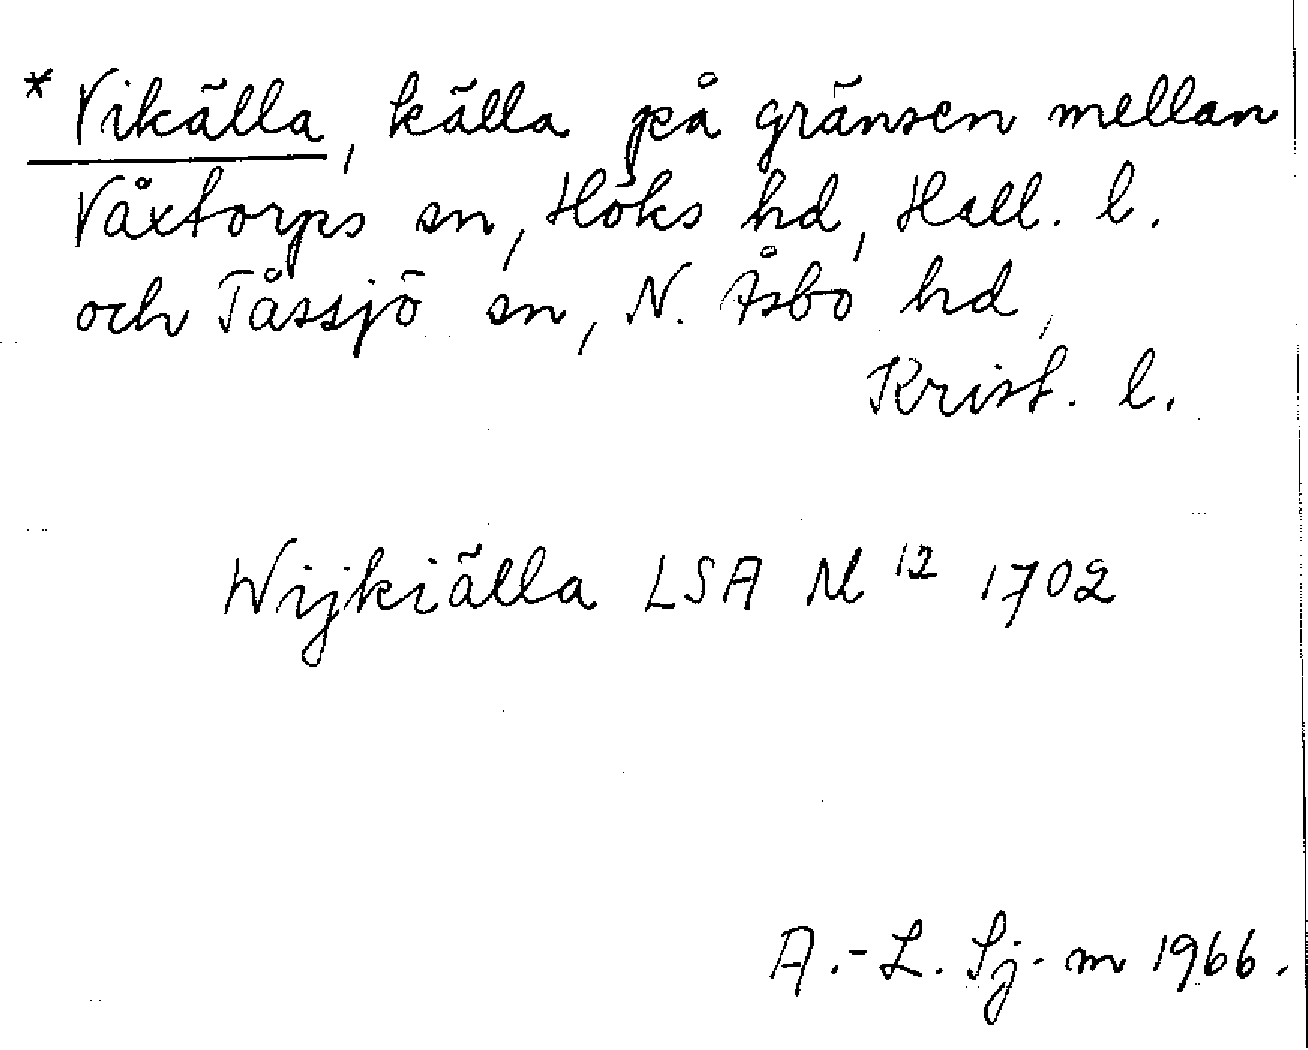 * Vikälla, källa på gränsen mellan
Våxtorps sn, Höks hd, Hall. l.
och Tåssjö sn, N. Åsbo hd,
Krist. l.
Wijkiälla LSA M 12 1702
A.-L. Sj-m 1966.